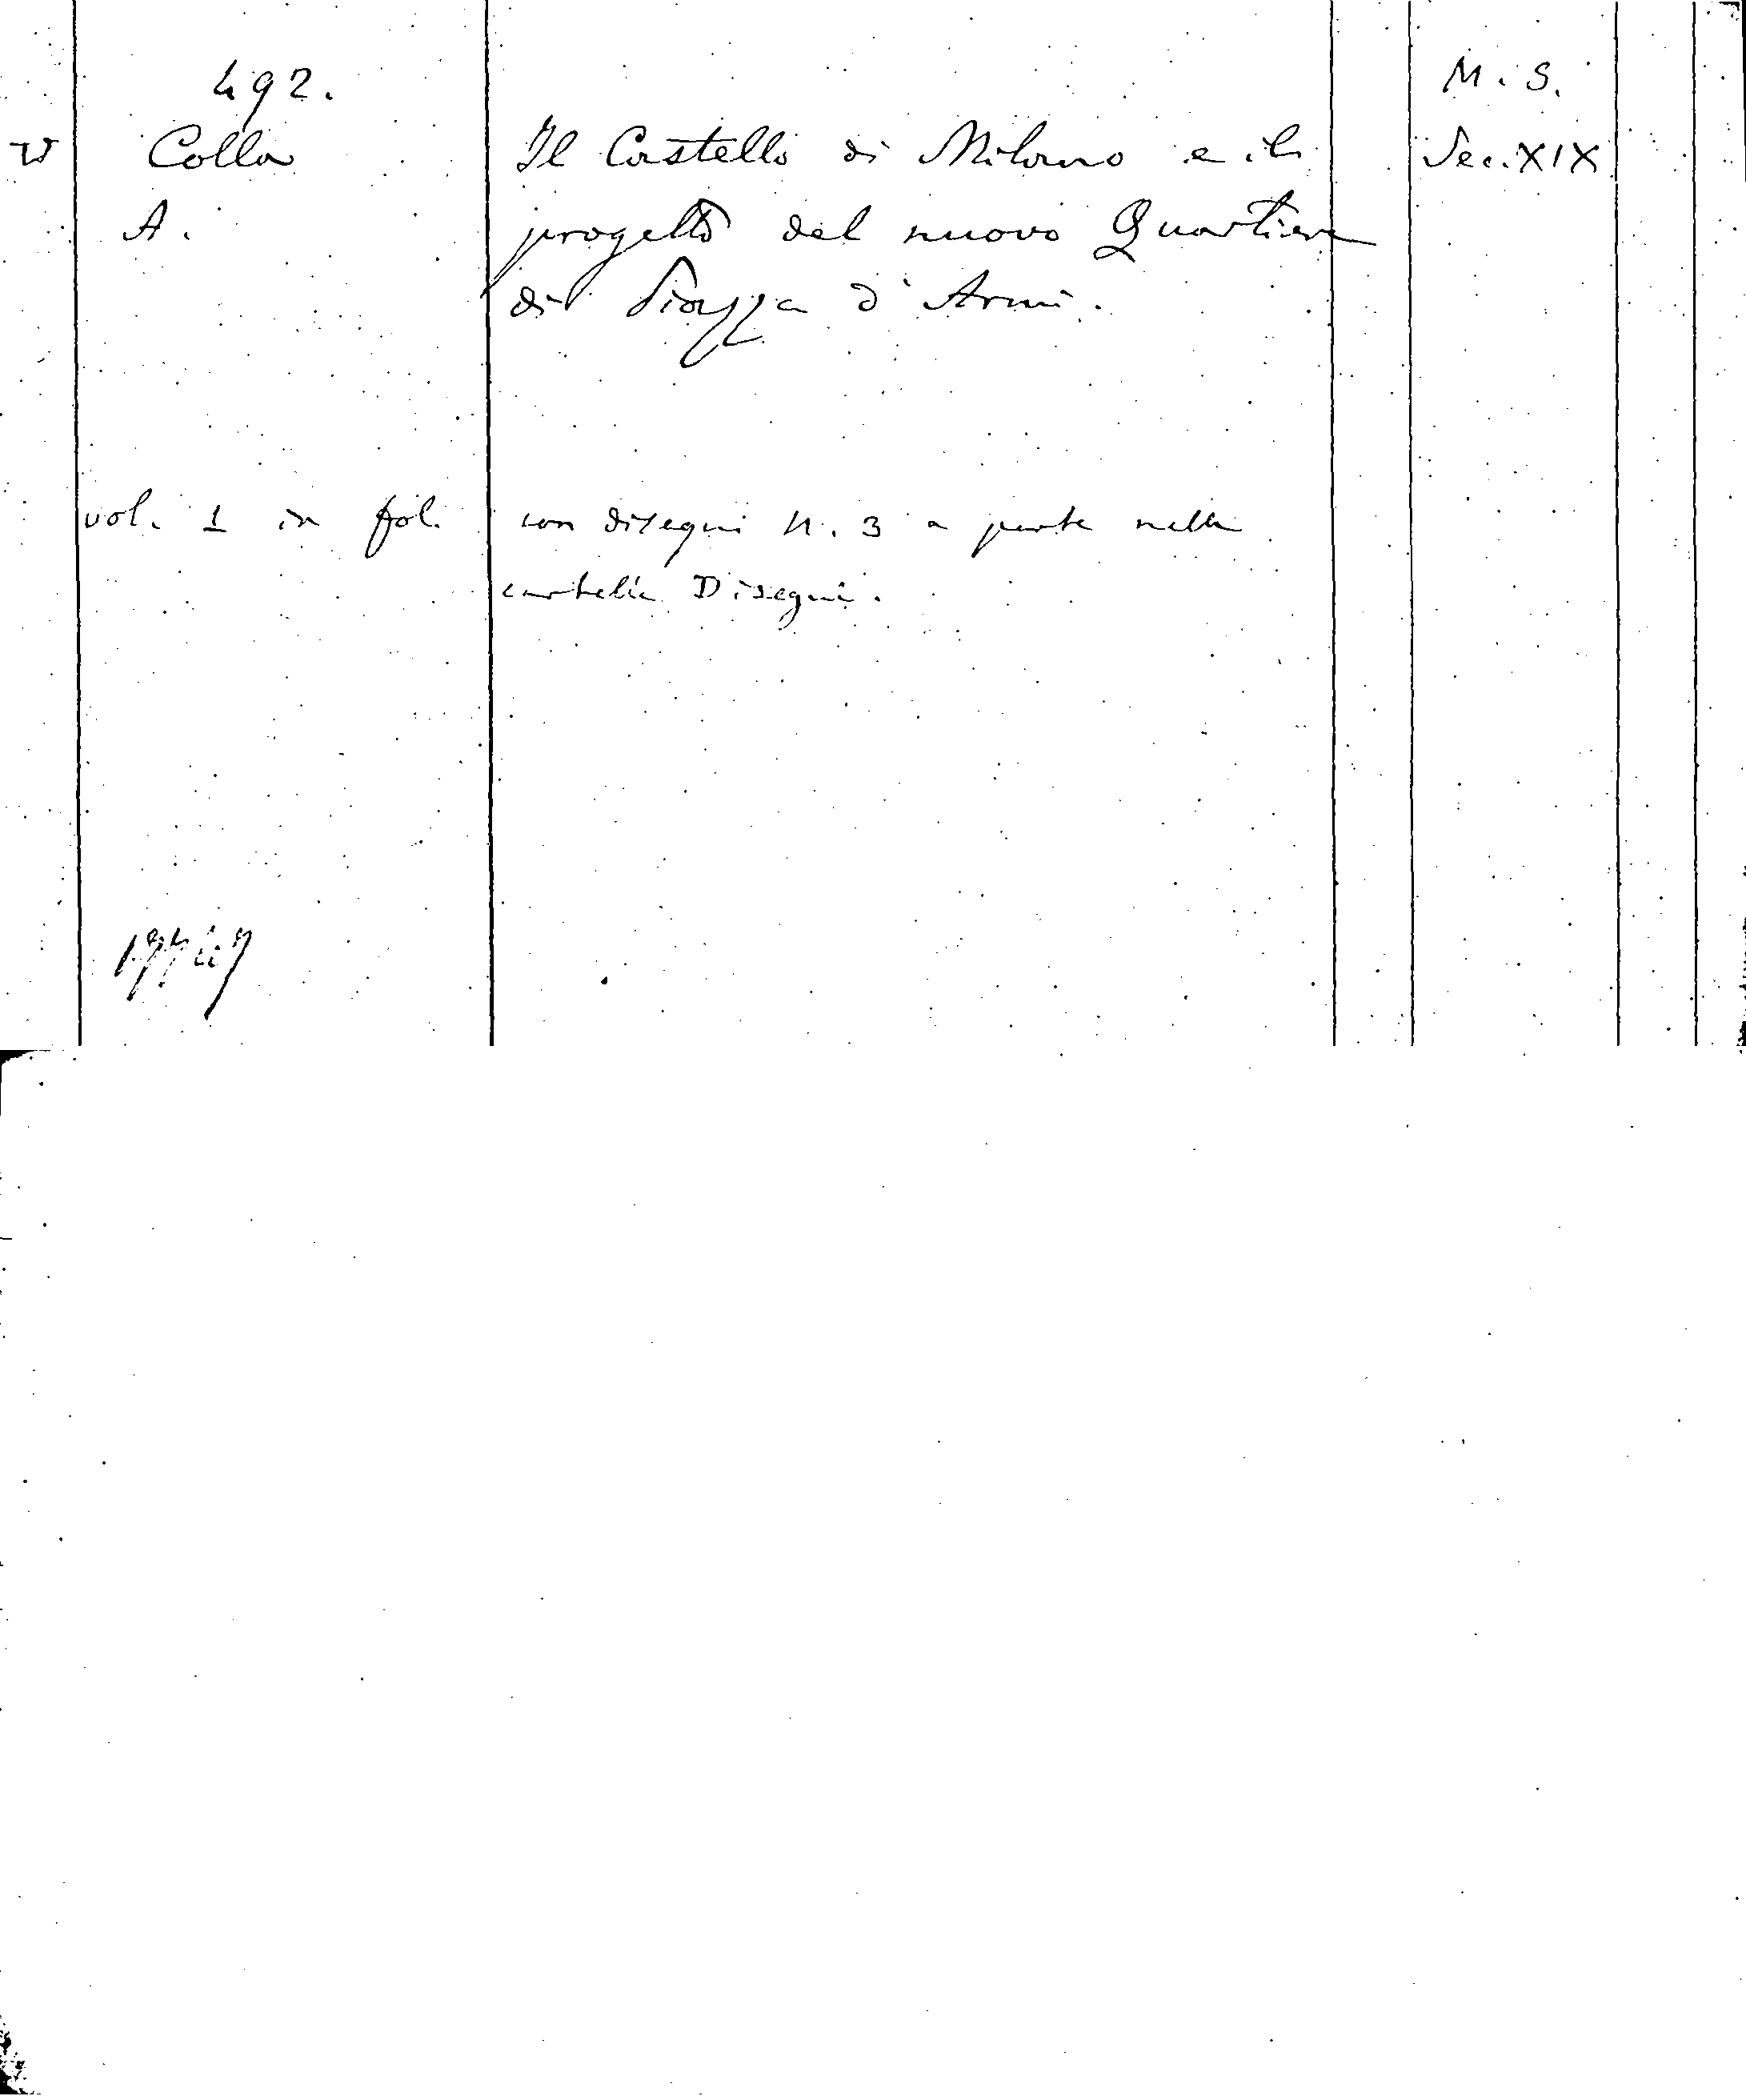 492.
M. S.
V Colla
Il Castello di Milano e il
Sec. XIX
A.
progetto del nuovo Quartiere
di Piazza d'Armi.
vol. 1 in fol.
con disegni N. 3 a parte nella
cartella Disegni.